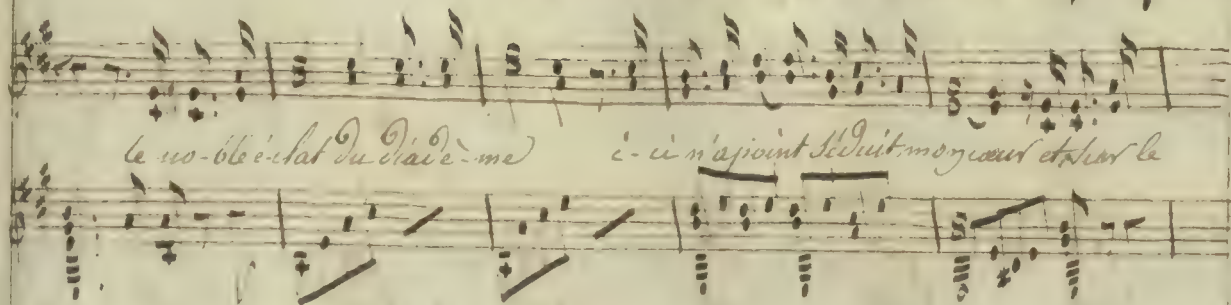 le no-ble é-clat du diadè-me i-ci n'a point séduit mon cœur et sur le